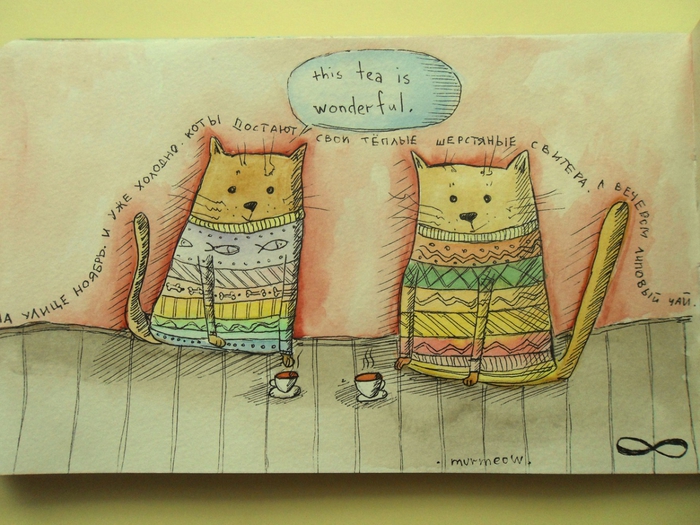 this tea is
wonderful.
НА УЛИЦЕ НОЯБРЬ. И УЖЕ ХОЛОДНО. КОТЫ ДОСТАЮТ СВОИ ТЁПЛЫЕ ШЕРСТЯНЫЕ СВИТЕРА, А ВЕЧЕРОМ ЛИПОВЫЙ ЧАЙ.
. murmeow.